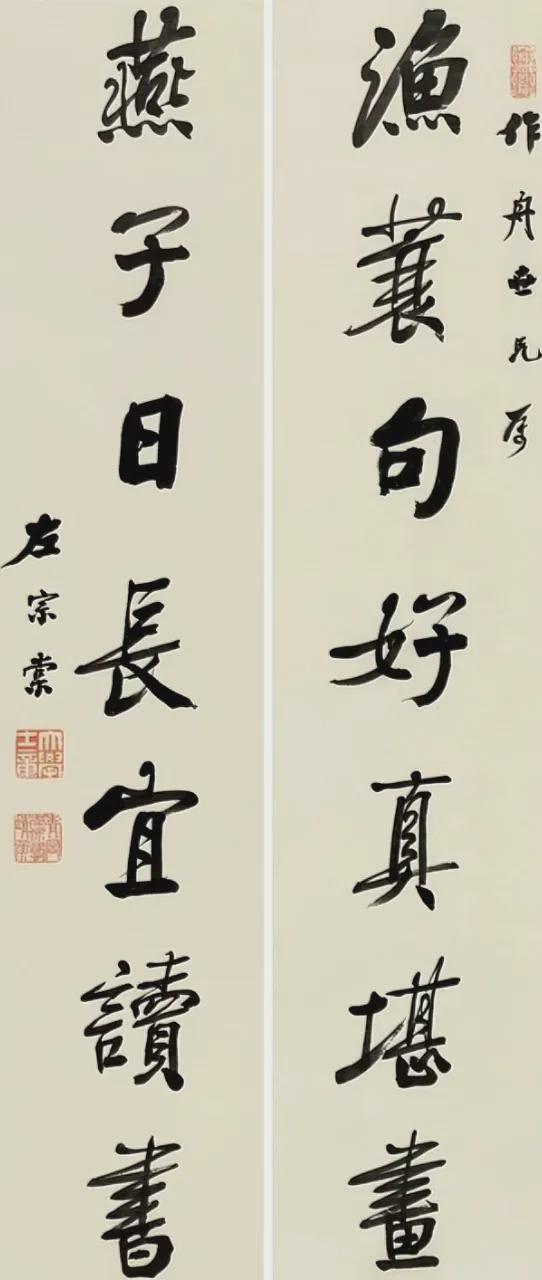 作舟世兄属
漁蓑句好真堪畫
燕子日長宜讀書
左宗棠